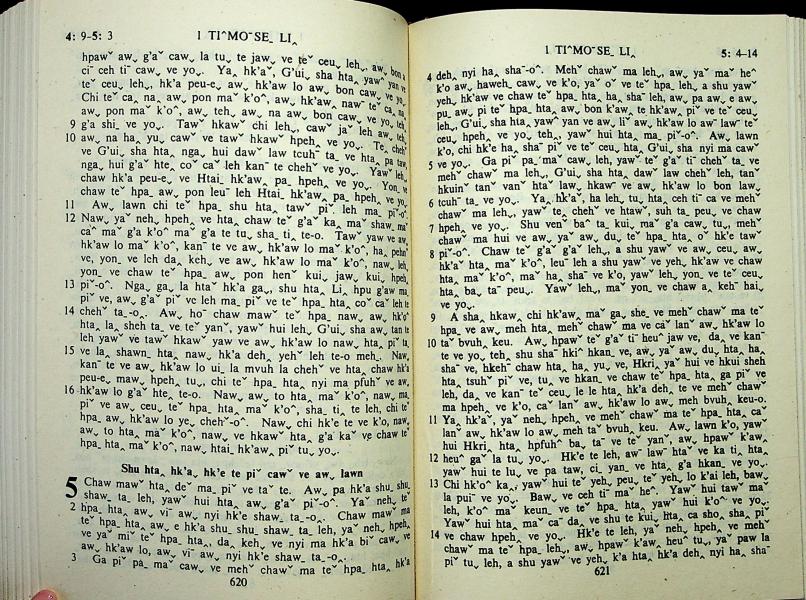 4: 9-5: 3
1 TIˆMOˉSE_ LI‸
hpawˇ aw˰ g'aˇ caw˰ la tu˰ te jaw˰ ve teˇ ceu leh˰, aw˰ bon‸
ciˉ ceh tiˉ caw˰ ve yo˰. Ya‸ hk'aˇ, G'ui˰ sha hta‸ yawˆ yan˰ ve
teˇ ceu leh˰, hk'a peu-e˰ aw˰ hk'aw lo aw˰ bon caw˰ ve yo˰.
Chi teˇ ca˰ na˰ aw˰ pon maˇ k'oˆ, aw˰ hk'aw˰ nawˉ te ca˰ na˰
aw˰ pon maˇ k'oˆ, aw˰ teh˰ aw˰ na aw˰ bon caw˰ ve yo˰ teh˰
9 g'a shi˰ ve yo˰. Tawˇ hkawˇ chi leh˰, cawˇ jaˇ leh aw˰ leh˰
10 aw˰ na ha‸ yu˰ cawˇ ve tawˇ hkawˇ hpeh‸ ve yo˰. Te‸ chehˇ
ve G'ui˰ sha hta‸ nga˰ hui dawˇ law tcuhˉ ta˰ ve hta‸ pa taw
nga˰ hui g'aˇ hte‸ coˇ caˇ leh kanˉ te chehˇ ve yo˰. Yawˇ leh˰
chaw hk'a peu-e˰ ve Htai˰ hk'aw‸ pa˰ hpeh‸ ve yo˰. Yon˰ ve
chaw teˇ hpa‸ aw˰ pon leuˉ leh Htai˰ hk'aw‸ pa˰ hpeh‸ ve yo˰.
11 Aw˰ lawn chi teˇ hpa‸ shu hta‸ tawˇ piˇ leh ma_ piˇ-oˆ.
12 Naw˰ yaˇ neh˰ hpeh‸ ve hta‸ chaw teˇ g'aˇ ka_ maˇ shaw_ ma˰
caˆ maˇ g'a k'oˆ maˇ g'a te tu˰ sha_ ti_ te-o. Tawˇ yaw ve aw˰
hk'aw lo maˇ k'oˆ, kanˉ te ve aw˰ hk'aw lo maˇ k'oˆ, ha‸ pehnˇ
ve, yon_ ve leh da˰ keh˰ ve aw˰ hk'aw lo maˇ k'oˆ, naw˰ leh˰
yon_ ve chaw teˇ hpa_ aw˰ pon henˇ kui˰ jaw˰ kui˰ hpeh˰
13 piˇ-oˆ. Nga˰ ga˰ la htaˇ hk'a ga˰, shu hta_ Li˰ hpu g'aw ma_
piˇ ve, aw˰ g'aˇ piˇ ve leh ma_ piˇ ve teˇ hpa_ hta‸ coˇ caˇ leh te
14 chehˇ ta_-o‸. Aw˰ hoˉ chaw maw˰ˇ teˇ hpa_ naw˰ aw˰ hk'oˆ
hta‸ la˰ sheh ta˰ ve teˇ yanˇ, yawˇ hui leh˰ G'ui˰ sha aw˰ tan te
leh yaw ve tawˇ hkaw yaw ve aw˰ hk'aw lo naw˰ hta‸ piˇ ta˰
15 ve la˰ shawn_ hta‸ naw˰ hk'a deh˰ yehˇ leh te-o meh˰. Naw˰
kanˉ te ve aw˰ hk'aw lo ui_ la mvuh la chehˇ ve hta‸ chaw hk'a
peu-e˰ maw˰ hpeh tu˰, chi teˇ hpa_ hta‸ nyi ma pfuhˇ ve aw˰
16 hk'aw lo g'aˇ hte‸ te-o. Naw˰ aw˰ to hta‸ maˇ k'oˆ, naw˰ ma_
piˇ ve aw˰ ceu teˇ hpa_ hta‸ maˇ k'oˆ, sha_ ti_ te leh, chi teˇ
hpa_ aw˰ hk'aw lo ye˰ chehˇ-oˆ. Naw˰ chi hk'e te ve k'o, naw˰
aw˰ to hta‸ maˇ k'oˆ, naw˰ ve hkawˇ hta‸ g'aˇ kaˇ ve chaw teˇ
hpa_ hta‸ maˇ k'oˆ, ntai hk'aw‸ piˇ tu˰ yo˰.
Shu hta‸ hk'a‸ hk'e te piˇ cawˇ ve aw˰ lawn
5 Chaw mawˇ hta‸ deˇ ma_ piˇ ve taˇ te. Aw˰ pa hk'a shu_ shu˰
shaw_ ta_ leh, yawˇ hui hta‸ aw˰ g'aˇ piˇ-oˆ. Yaˇ neh˰ teˇ
2 hpa_ hta‸ aw˰ viˉ aw˰ nyi hk'e shaw_ ta_-o‸. Chaw maw˰ ma
teˇ hpa_ hta‸ aw˰ e hk'a shu_ shu_ shaw_ ta_ leh, yaˇ neh˰ hpeh˰
ve yaˇ miˉ teˇ hpa_ hta‸, da˰ keh˰ ve nyi ma hk'a biˇ caw˰ ve
aw˰ hk'aw lo, aw˰ viˉ aw˰ nyi hk'e shaw_ ta_-o‸.
3 Ga piˇ pa_ maˇ ca˰ ve mehˇ chawˇ ma teˇ hpa_ hta‸ hk'a
620
1 TIˆMOˉSE_ LI‸
5: 4-14
4 deh‸ nyi ha‸ shaˉ-oˆ. Mehˇ chawˇ ma leh˰, aw˰ yaˇ maˇ heˆ
k'o aw˰ haweh˰ caw˰ ve k'o, yaˇ oˇ ve teˇ hpa_ leh˰ a shu yawˇ
yeh˰ hk'aw ve chaw teˇ hpa_ hta‸ ha‸ shaˉ leh, aw˰ pa aw˰ e aw˰
pu˰ aw˰ pi teˇ hpa_ hta‸ aw˰ bon k'aw˰ te hk'a‸ piˇ ve teˇ ceu
leh˰, G'ui˰ sha hta‸ yawˆ yan ve aw˰ liˇ aw˰ hk'aw lo awˇ lawˉ te
ceu˰ hpeh˰ ve yo˰ teh˰, yawˇ hui hta‸ ma_ piˇ-oˆ. Aw˰ lawn
k'o, chi hk'e ha‸ shaˉ piˇ ve teˇ ceu hta‸ G'ui˰ sha nyi ma caw˰
5 ve yo˰. Ga piˇ pa_ maˇ caw˰ leh, yawˇ teˇ g'aˇ tiˉ chehˇ ta_ ve
mehˇ chawˇ ma leh˰, G'ui˰ sha hta‸ daw law cheh leh, tanˇ
hkuinˇ tanˇ vanˇ htaˇ law˰ hkawˇ ve aw˰ hk'aw lo bon law˰
6 tcuhˉ ta_ ve yo˰. Ya‸ hk'aˇ, ha leh˰ tu˰ hta‸ ceh tiˉ ca ve mehˇ
chawˇ ma leh˰, yawˇ te‸ chehˇ ve htawˇ, suh ta_ peu˰ ve chaw
7 hpeh‸ ve yo˰. Shu venˇ baˆ ta_ kui˰ maˇ g'a cawˇ tu˰, mehˇ
chawˇ ma hui ve aw˰ yaˇ aw˰ du˰ teˇ hpa_ hta‸ oˇ hk'e taw
8 piˇ-oˆ. Chawˇ teˇ g'aˇ g'aˇ leh˰, a shu yawˇ ve aw˰ ceu˰ aw˰
hk'aˇ hta‸ maˇ k'oˆ, leuˉ leh a shu yawˇ ve yeh˰ hk'aw ve chaw
hta‸ maˇ k'oˆ, maˇ ha‸ shaˉ ve k'o, yawˇ leh˰ yon_ ve teˇ ceu
hta‸ ba˰ ta_ peu˰. Yawˇ leh˰, maˇ yon_ ve chaw a˰ kehˉ hai˰
ve yo˰.
9 A sha‸ hkaw‸ chi hk'aw‸ maˇ ga_ she˰ ve mehˇ chawˇ ma teˇ
hpa_ ve aw˰ meh hta‸ mehˇ chawˇ ma ve caˇ lanˇ aw˰ hk'aw lo
10 taˇ bvuh˰ keu. Aw˰ hpawˇ teˇ g'aˇ tiˉ heuˆ jaw ve, da˰ ve kanˉ
te ve yo˰ teh˰ shu shaˉ hkiˆ hkan˰ ve, aw˰ yaˇ aw˰ du˰ hta‸ ha‸
shaˉ ve, hkehˉ chaw hta‸ ha‸ yu˰ ve, Hkri˰ yaˇ hui ve hkui sheh
hta‸ tsuhˇ piˇ ve, tu˰ ve hkan˰ ve chaw teˇ hpa_ hta‸ ga piˇ ve
leh, da˰ ve kanˉ teˇ ceu˰ le le hta‸ hk'a deh˰ te ve mehˇ chawˇ
ma hpeh˰ ve k'o, caˇ lanˇ aw˰ hk'aw lo aw˰ meh bvuh˰ keu-o.
11 Ya‸ hk'aˇ, yaˇ neh˰ hpeh‸ ve mehˇ chawˇ ma teˇ hpa_ hta‸ caˇ
lanˇ aw˰ hk'aw lo aw˰ meh taˇ bvuh˰ keu. Aw˰ lawn k'o, yawˇ
hui Hkri_ hta‸ hpfuhˆ ba˰ taˉ ve te yanˇ, aw˰ hpawˇ k'aw˰
12 heuˆ gaˇ la tu˰ yo˰. Hk'e te leh, awˇ lawˇ htaˇ ve ka ti_ hta‸
yawˇ hui te lu˰ ve pa taw˰ ci˰ yan_ ve hta‸ g'a hkan_ ve yo˰.
13 Chi hk'oˆ ka˰, yawˇ hui teˇ yeh˰ peu˰ teˇ yeh˰ lo k'ai leh, baw˰
la puiˉ ve yo˰. Baw˰ ve ceh tiˉ maˇ heˆ. Yawˇ hui tawˇ ma˰
leh˰ k'oˆ maˇ keun_ ve teˇ hpa_ hta‸ yawˇ hui k'oˆ ve yo˰.
Yawˇ hui hta‸ maˇ caˇ da˰ ve shu te kui˰ hta‸ ca sho‸ sha‸ piˇ
14 ve chaw hpeh‸ ve yo˰. Hk'e te leh˰ yaˇ neh˰ hpeh‸ ve mehˇ
chawˇ ma teˇ hpa_ leh˰, aw˰ hpawˇ k'aw˰ heuˆ tu˰, yaˇ paw la
piˇ tu˰ leh, a shu yawˇ ve yeh˰ k'a hta‸ hk'a deh‸ nyi ha‸ shaˉ
621